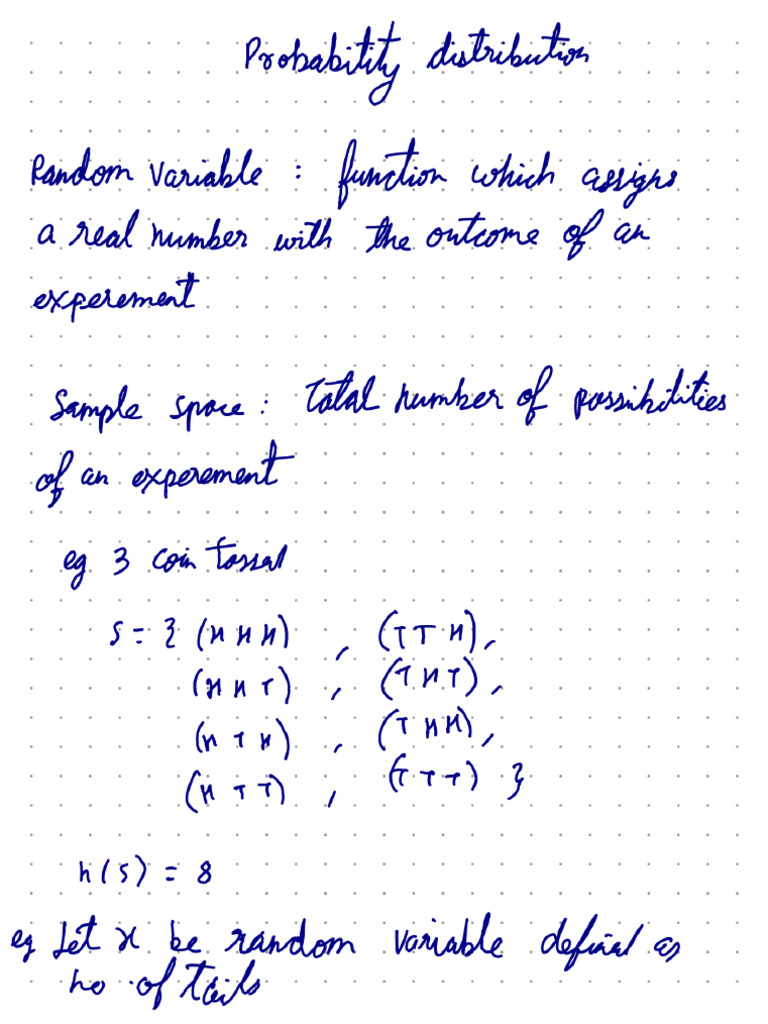 Probability distribution
Random Variable : function which assigns
a real number with the outcome of an
experement
Sample space : Total number of possibilities
of an experement
eg 3 coin tossed
S = { (H H H) , (T T H),
(H H T) , (T H T),
(H T H) , (T H H),
(H T T) , (T T T) }
n(s) = 8
eg Let x be random variable defined as
no of tails